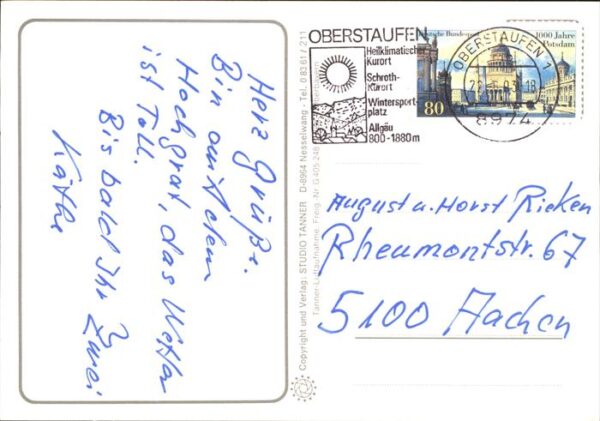 Herz. Grüße.
Bin auf dem
Hochgrat, das Wetter
ist Toll.
Bis bald Ihr Zwei
Käthe
Copyright und Verlag: STUDIO TANNER D-8964 Nesselwang - Tel. 0 83 61 / 211
Tanner-Luftaufnahme, Freig.-Nr. G
OBERSTAUFEN
Heilklimatischer
Kurort
Schroth-
Kurort
Wintersport-
platz
Allgäu
800-1880m
Deutsche Bundespost
1000 Jahre
Potsdam
80
OBERSTAUFEN 1
8974
August u. Horst Rieken
Rheumontstr. 67
5100 Aachen